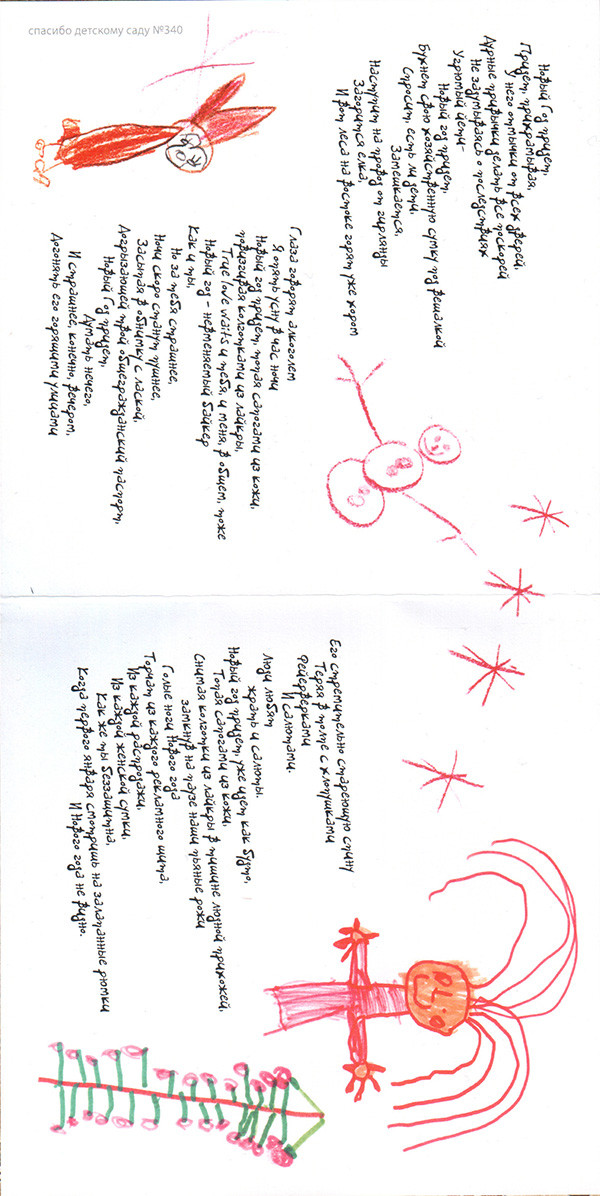 спасибо детскому саду №340
Новый Год придет,
Придет, прихрамывая,
У него отмычки от всех дверей.
Дурные привычки делать все поскорей
Не задумываясь о последствиях
Угрюмый дети-
Новый год придет,
Бухнет свою хозяйственную сумку под вешалкой
Спросит, есть ли дети,
Замешкается,
Наступит на провод от гирлянды
Загорится елка,
И вот леса на востоке горят уже хором
Глаза говорят алкоголем
Я опять усну в час ночи
Новый год придет, топая сапогами из кожи,
повизгивая колготками из лайкры,
True love waits и тебя, и меня, в общем, тоже
Новый год - невменяемый байкер
Как и ты,
Но за тебя страшнее,
Ночи скоро станут пушнее,
Засыпая в обнимку с лаской,
Догрызающей твой общегражданский паспорт,
Новый Год придет,
Думать нечего,
И страшнее, конечно, вечером,
Догонять его горящими улицами
Его стремительно стареющую спину
Теряя в толпе с хлопушками
Фейерверками
И салютами.
Люди любят
жрать и салюты.
Новый год придет, уже идет как будто,
Топая сапогами из кожи,
Снимая колготки из лайкры в тишине людной прихожей,
замкнув на паузе наши пьяные рожи
Голые ноги Нового года
Торчат из каждого рекламного щита,
Из каждой распродажи,
Из каждой женской сумки,
Как же ты беззащитна,
Когда первого января смотришь на залапанные рюмки
И Нового года не видно.